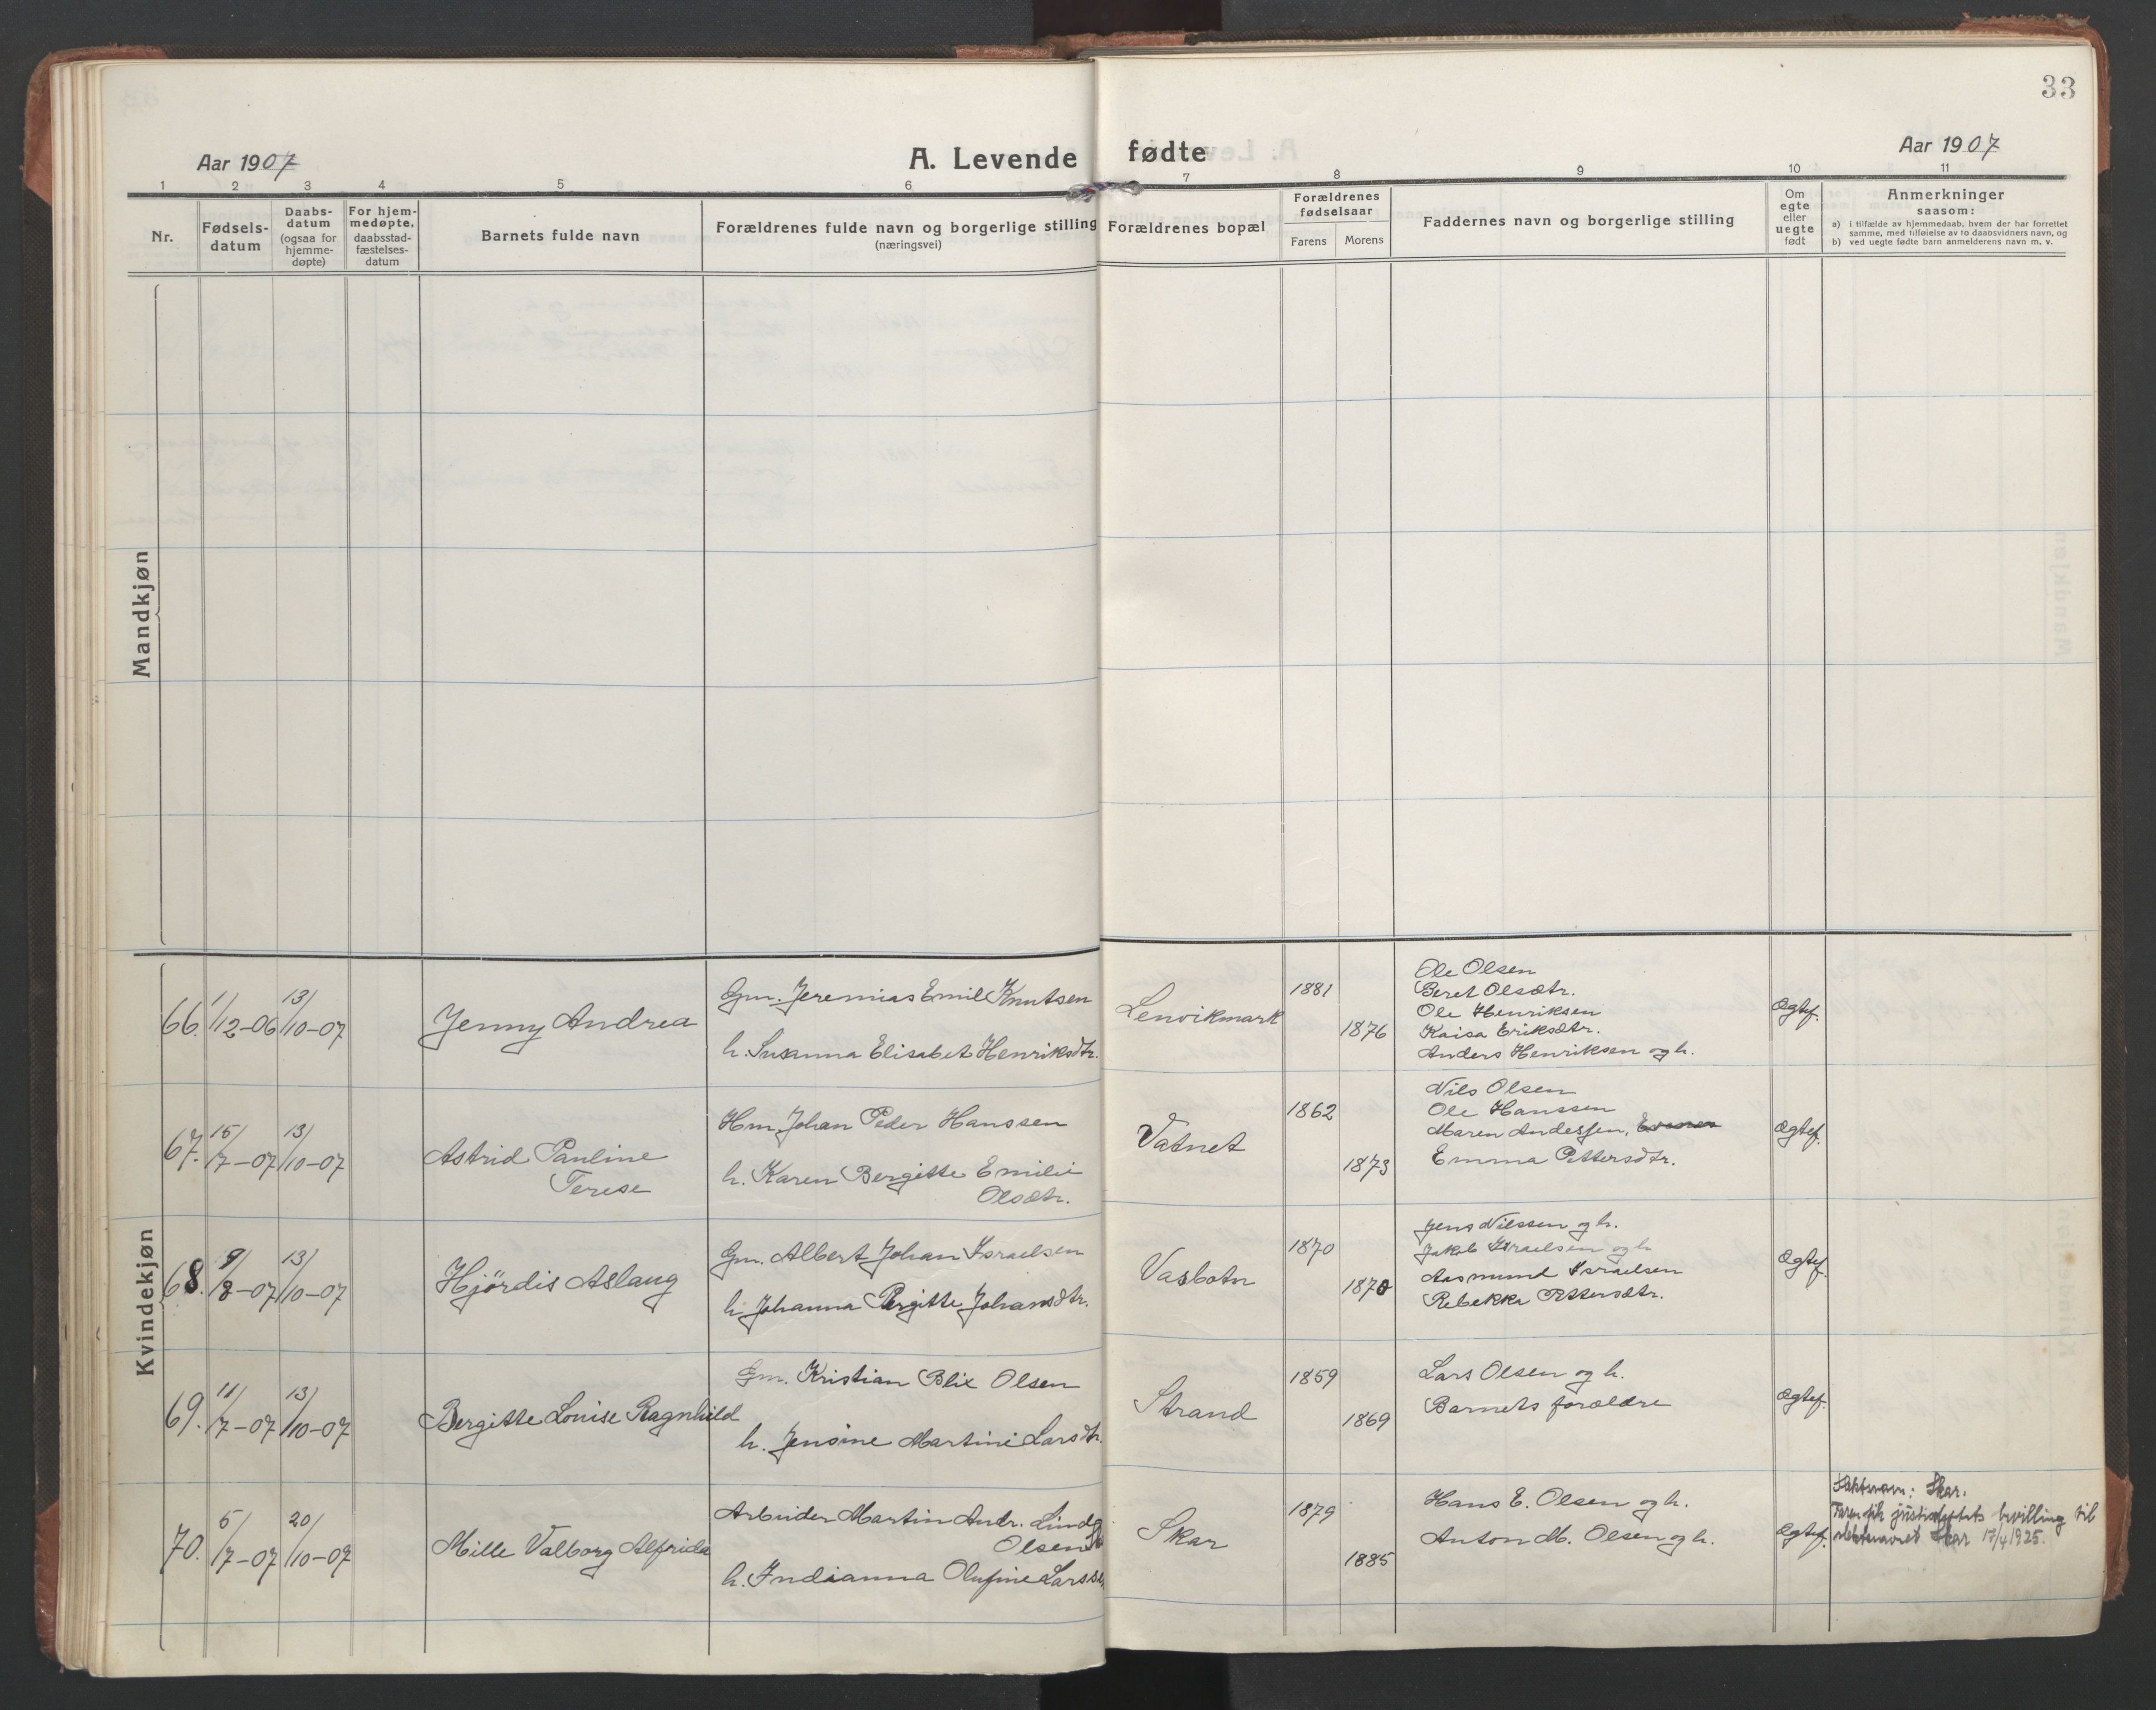 33
Aar 1907
A. Levende fødte
Aar 1907
1 2 3 4 5 6 7 8 9 10 11
Nr.
Fødsels-
datum
Daabs-
datum
(ogsaa for
hjemme-
døpte)
For hjem-
medøpte,
daabsstad-
fæstelses-
datum
Barnets fulde navn
Forældrenes fulde navn og borgerlige stilling
(næringsvei)
Forældrenes bopæl
Forældrenes
fødselsaar
Farens
Morens
Faddernes navn og borgerlige stilling
Om
egte
eller
uegte
født
Anmerkninger
saasom:
a) i tilfælde av hjemmedaab, hvem der har forrettet
samme, med tilføielse av to daabsvidners navn, og
b) ved uegte fødte barn anmelderens navn m. v.
Mandkjøn
Kvindekjøn
66. 1/12-06 13/10-07
Jenny Andrea
Gm. Jeremias Emil Knutsen
h. Susanna Elisabet Henriksdtr.
Lenvikmark
1881
1876
Ole Olsen
Beret Olsdtr.
Ole Henriksen
Kaisa Eriksdtr.
Anders Henriksen og h.
Ægtef.
67. 15/7-07 13/10-07
Astrid Pauline
Terese
Hm. Johan Peder Hanssen
h. Karen Bergitte Emilie
Olsdtr.
Vatnet
1862
1873
Nils Olsen
Ole Hanssen
Maren Andessen,
Emma Pettersdtr.
Ægtef.
68. 9/8-07 13/10-07
Hjördis Aslaug
Gm. Albert Johan Israelsen
h. Johanna Bergitte Johansdtr.
Vasbotn
1870
1870
Jens Nilssen og h.
Jakob Israelsen og h
Aasmund Israelsen
Rebekka Pettersdtr.
Ægtef.
69. 11/7-07 13/10-07
Bergitte Louise Ragnhild
Gm. Kristian Blix Olsen
h. Jensine Martine Larsdtr.
Strand
1859
1869
Lars Olsen og h.
Barnets forældre
Ægtef.
70. 5/7-07 20/10-07
Mille Valborg Alfrida
Arbeider Martin Andr. Lind
Olsen
h. Indianna Olufine Larssen
Skar
1879
1885
Hans E. Olsen og h.
Anton M. Olsen og h.
Ægtef.
Slektsnavn: Skar.
Faren fik justisdeptets bevilling til
slektsnavnet Skar 17/4 1925.